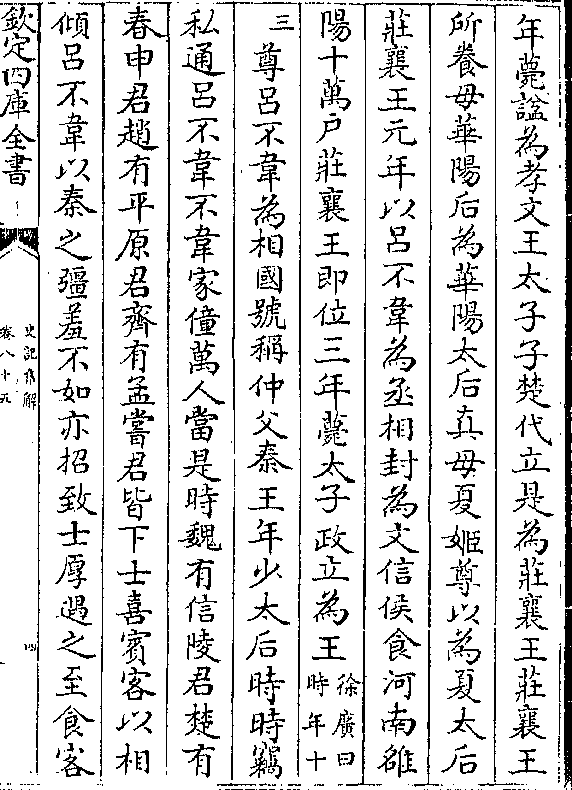 年薨諡為孝文王太子子楚代立是為莊襄王莊襄王
所養母華陽后為華陽太后真母夏姬尊以為夏太后
莊襄王元年以呂不韋為丞相封為文信侯食河南雒
陽十萬戶莊襄王即位三年薨太子政立為王徐廣曰時年十
三尊呂不韋為相國號稱仲父秦王年少太后時時竊
私通呂不韋不韋家僮萬人當是時魏有信陵君楚有
春申君趙有平原君齊有孟嘗君皆下士喜賓客以相
傾呂不韋以秦之彊羞不如亦招致士厚遇之至食客
欽定四庫全書
史記集解
卷八十五
四